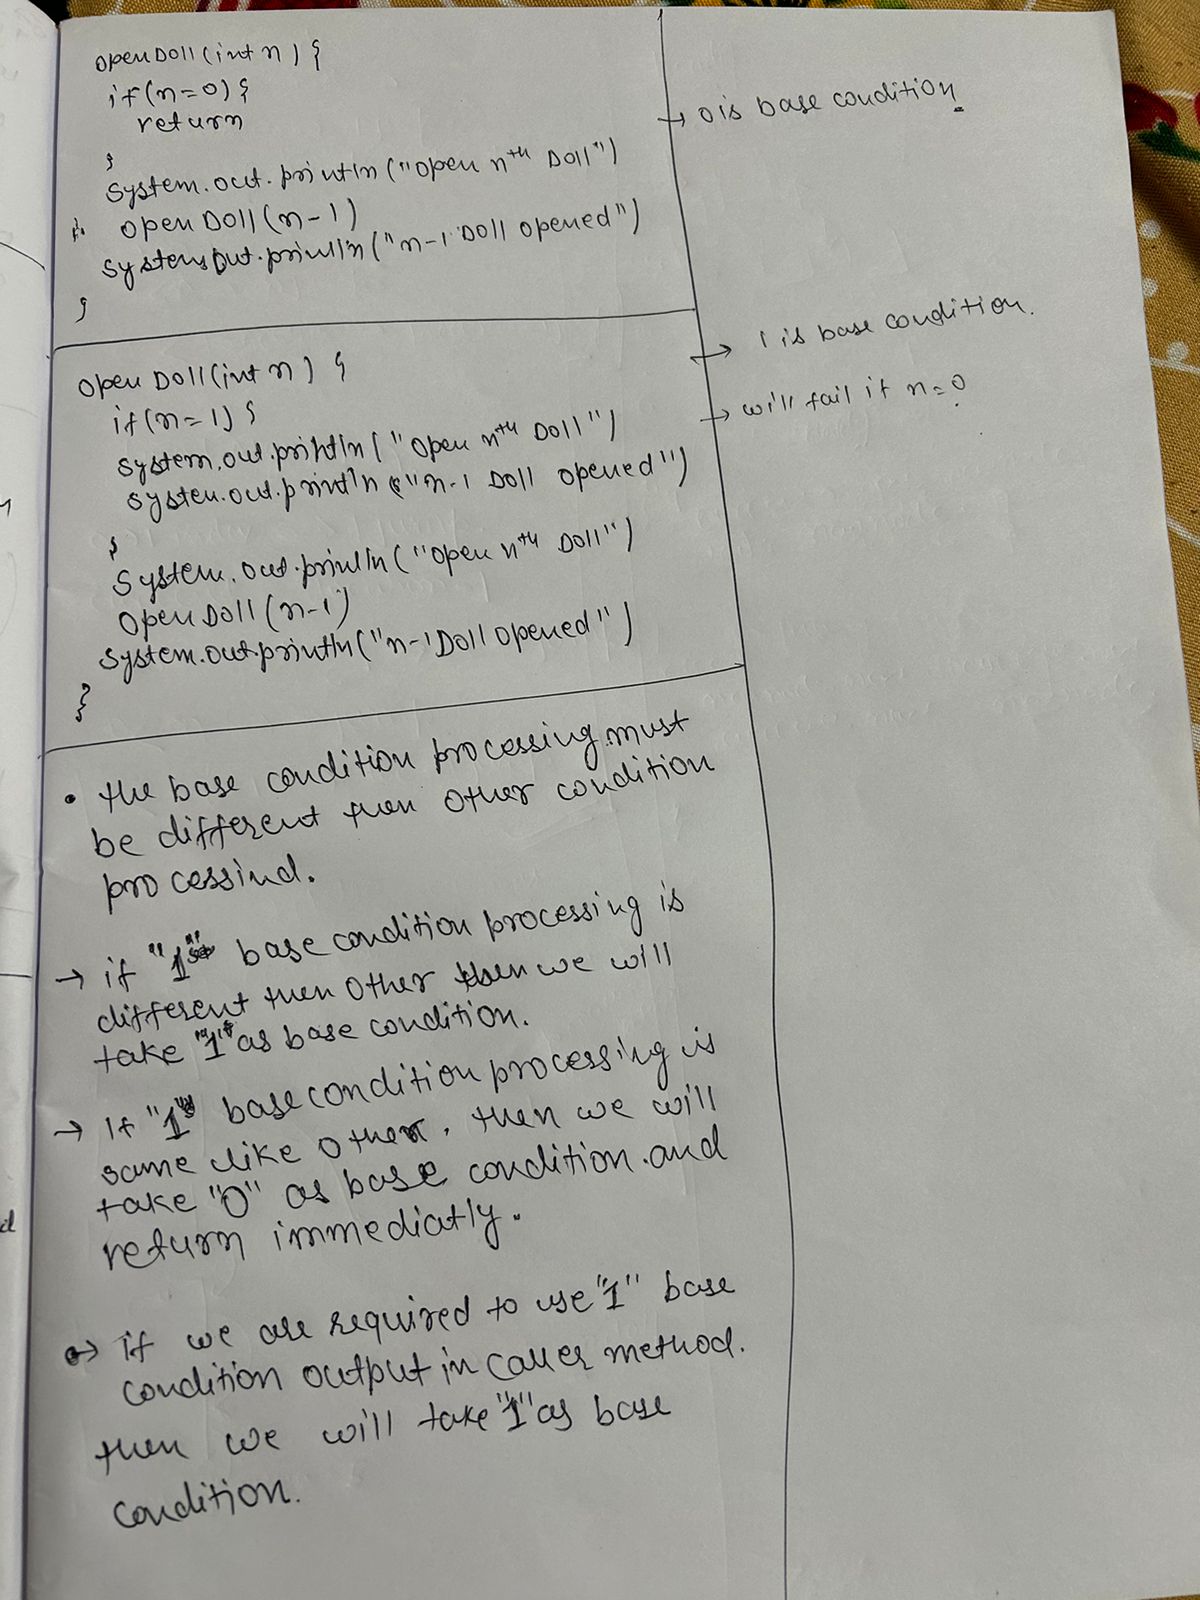 openDoll(int n) {
if(n=0){
return
}
→ 0 is base condition
System.out.println("Open nth Doll")
openDoll(n-1)
System.out.println("n-1 Doll opened")
}
open Doll(int n) {
→ 1 is base condition.
if(n=1) {
→ will fail if n=0
System.out.println("Open nth Doll")
System.out.println("n-1 Doll opened")
}
System.out.println("Open nth Doll")
Open Doll(n-1)
System.out.println("n-1 Doll opened")
}
• the base condition processing must
be different then other condition
processind.
→ if "1" base condition processing is
different then other then we will
take "1" as base condition.
→ If "1" base condition processing is
same like other, then we will
take "0" as base condition. and
return immediatly.
→ if we are required to use "1" base
condition output in caller method.
then we will take "1" as base
condition.